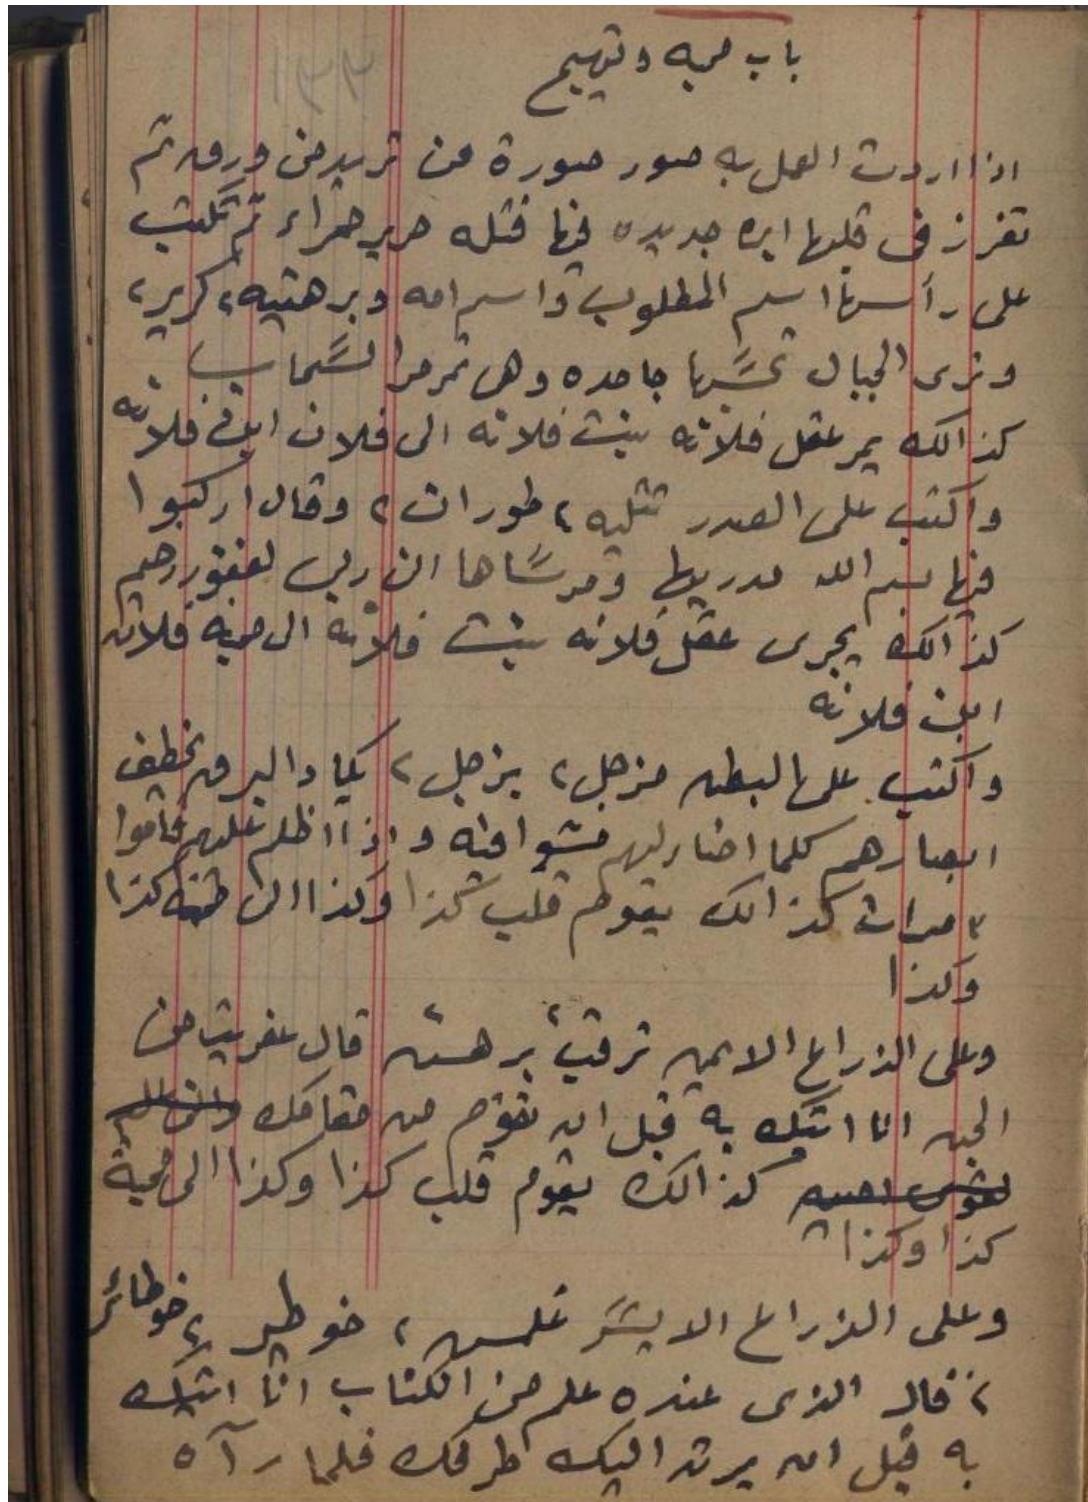 باب محبه وتهيج
اذا اردت العمل به صور صورة من تريد من ورق ثم
تغرز في قلبها ابره جديده فيها فتله حرير حمراء ثم تكتب
على رأسها اسم المطلوب واسم امه وبرهتيه، كرير،
وترى الجبال تحسبها جامده وهي تمر مر السحاب
كذالك يمر عقل فلانه بنت فلانه الى فلان ابن فلانه
واكتب على الصدر تتليه، طوران، وقال اركبوا
فيها بسم الله مدريها ومرساها ان ربي لغفور رحيم
كذالك يجرى عقل فلانه بنت فلانه الى محبه فلان
ابن فلانه
واكتب على البطن مزجل، بزجل، يكاد البرق يخطف
ابصارهم كلما اضاء لهم مشوا فيه واذا اظلم عليهم قاموا
٣ مرات كذالك يقوم قلب كذا وكذا الى كذا
وكذا
وعلى الذراع الايمن ترقب، برهش، قال عفريت من
الجن انا اتيك به قبل ان تقوم من مقامك
كذالك يقوم قلب كذا وكذا الى محبة
كذا وكذا
وعلى الذراع الايسر غلمش، خوطير،
، قال الذى عنده علم من الكتاب انا اتيك
به قبل ان يرتد اليك طرفك فلما رآه